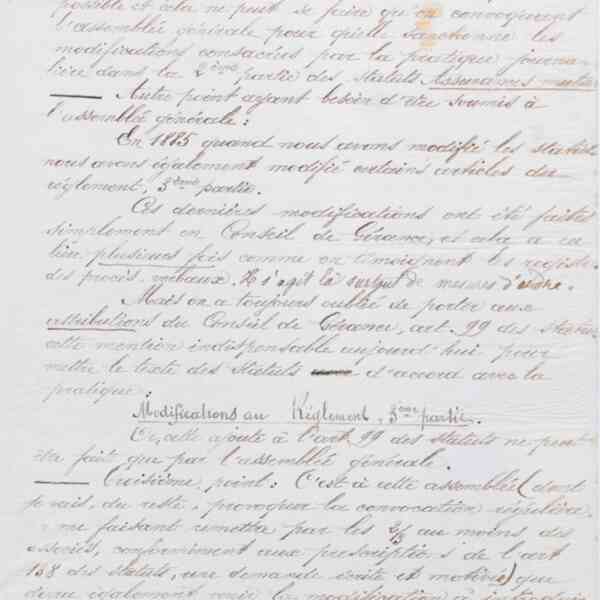 possible et cela ne peut se faire qu'en convoquant
l'assemblée générale pour qu'elle sanctionne les
modifications consacrées par la pratique journa-
lière dans la 2ème partie des statuts Assurances mutuel
Autre point ayant besoin d'être soumis à
l'assemblée générale :
En 1885 quand nous avons modifié les statuts
nous avons également modifié certains articles du
règlement, 3ème partie.
Ces dernières modifications ont été faites
simplement en Conseil de Gérance, et cela a eu
lieu plusieurs fois comme en témoignent les registres
des procès verbaux. Il s'agit là surtout de mesures d'ordre.
Mais on a toujours oublié de porter aux
attributions du Conseil de Gérance, art. 99 des statuts
cette mention indispensable aujourd'hui pour
mettre le texte des Statuts d'accord avec la
pratique :
Modifications au Règlement, 3ème partie.
Or, cette ajoute à l'art. 99 des statuts ne peut
être fait que par l'assemblée générale.
Troisième point : C'est à cette assemblée (dont
je vais, du reste, provoquer la convocation régulière
me faisant remettre par les 2/3 au moins des
associés, conformément aux prescriptions de l'art
138 des statuts, une demande écrite et motivée) que
devra également venir la modification à introduire